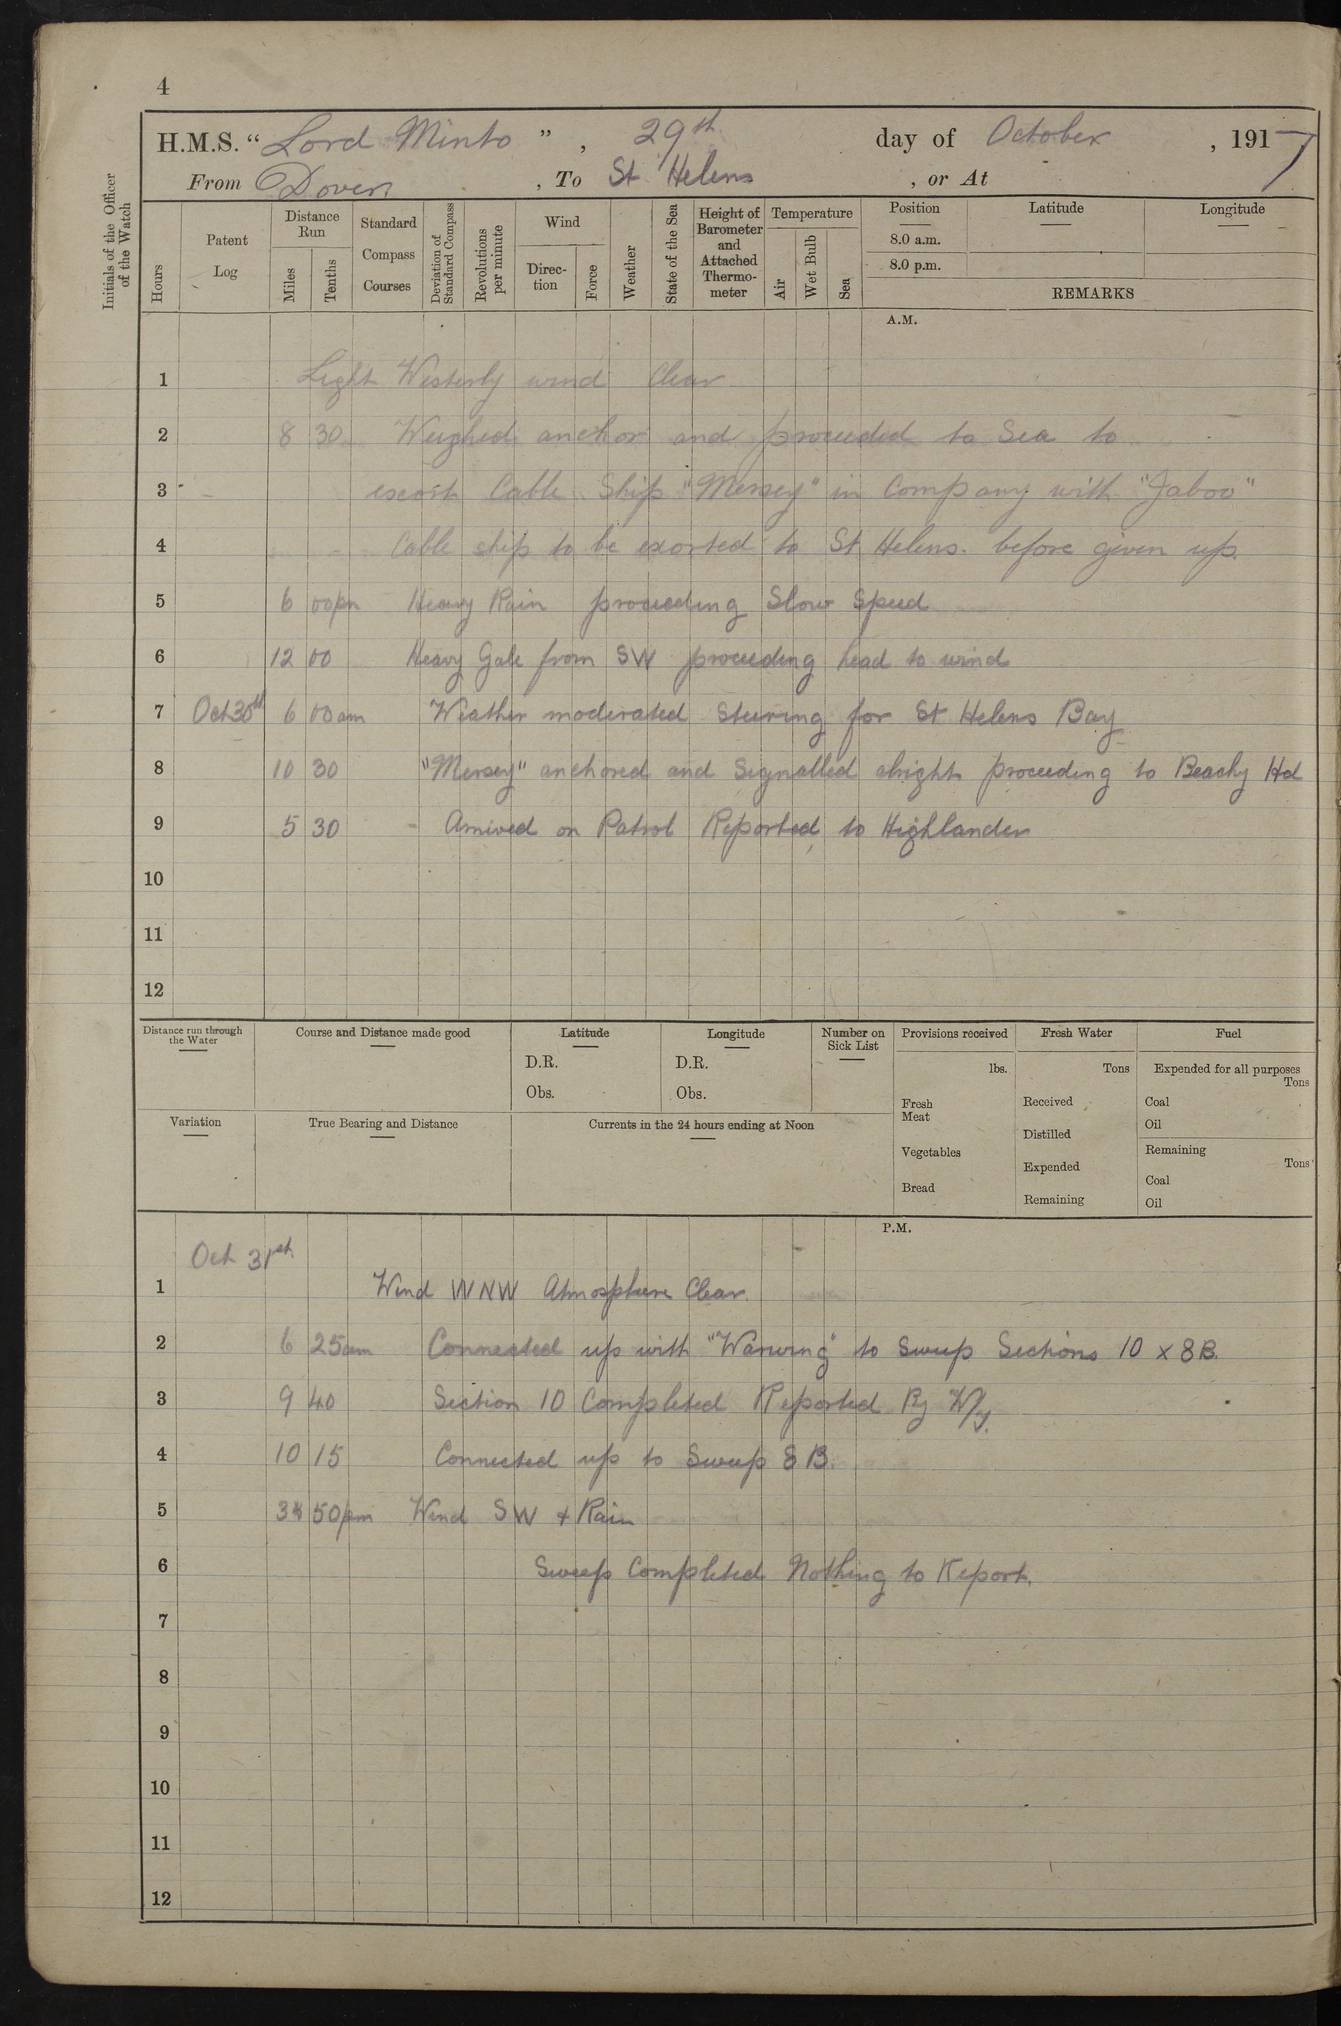 4
H.M.S. "Lord Minto", 29th day of October, 1917
From Dover, To St Helens, or At
Initials of the Officer of the Watch
Hours
Patent Log
Distance Run
Miles
Tenths
Standard Compass Courses
Deviation of Standard Compass
Revolutions per minute
Wind
Direc-tion
Force
Weather
State of the Sea
Height of Barometer and Attached Thermo-meter
Temperature
Air
Wet Bulb
Sea
Position
8.0 a.m.
8.0 p.m.
Latitude
Longitude
REMARKS
A.M.
1 Light Westerly wind Clear
2 8 30 Weighed anchor and proceeded to Sea to
3 escort Cable Ship "Mersey" in Company with "Jaboo"
4 Cable ship to be exorted to St Helens. before given up.
5 6 00pm Heavy Rain proceeding Slow Speed
6 12 00 Heavy Gale from SW proceeding head to wind
7 Oct 30th 6 00am Weather moderated Steering for St Helens Bay
8 10 30 "Mersey" anchored and Signalled alright proceeding to Beachy Hd
9 5 30 - Arrived on Patrol Reported to Highlander
10
11
12
Distance run through the Water
Course and Distance made good
Latitude
D.R.
Obs.
Longitude
D.R.
Obs.
Number on Sick List
Provisions received
lbs.
Fresh Meat
Vegetables
Bread
Fresh Water
Tons
Received
Distilled
Expended
Remaining
Fuel
Expended for all purposes
Tons
Coal
Oil
Remaining
Tons
Coal
Oil
Variation
True Bearing and Distance
Currents in the 24 hours ending at Noon
P.M.
Oct 31st
1 Wind WNW Atmosphere Clear.
2 6 25am Connected up with "Warwing" to Sweep Sections 10 x 8B.
3 9 40 Section 10 Completed Reported By W/T.
4 10 15 Connected up to Sweep 8 B.
5 3 50pm Wind SW & Rain
6 Sweep Completed Nothing to Report.
7
8
9
10
11
12